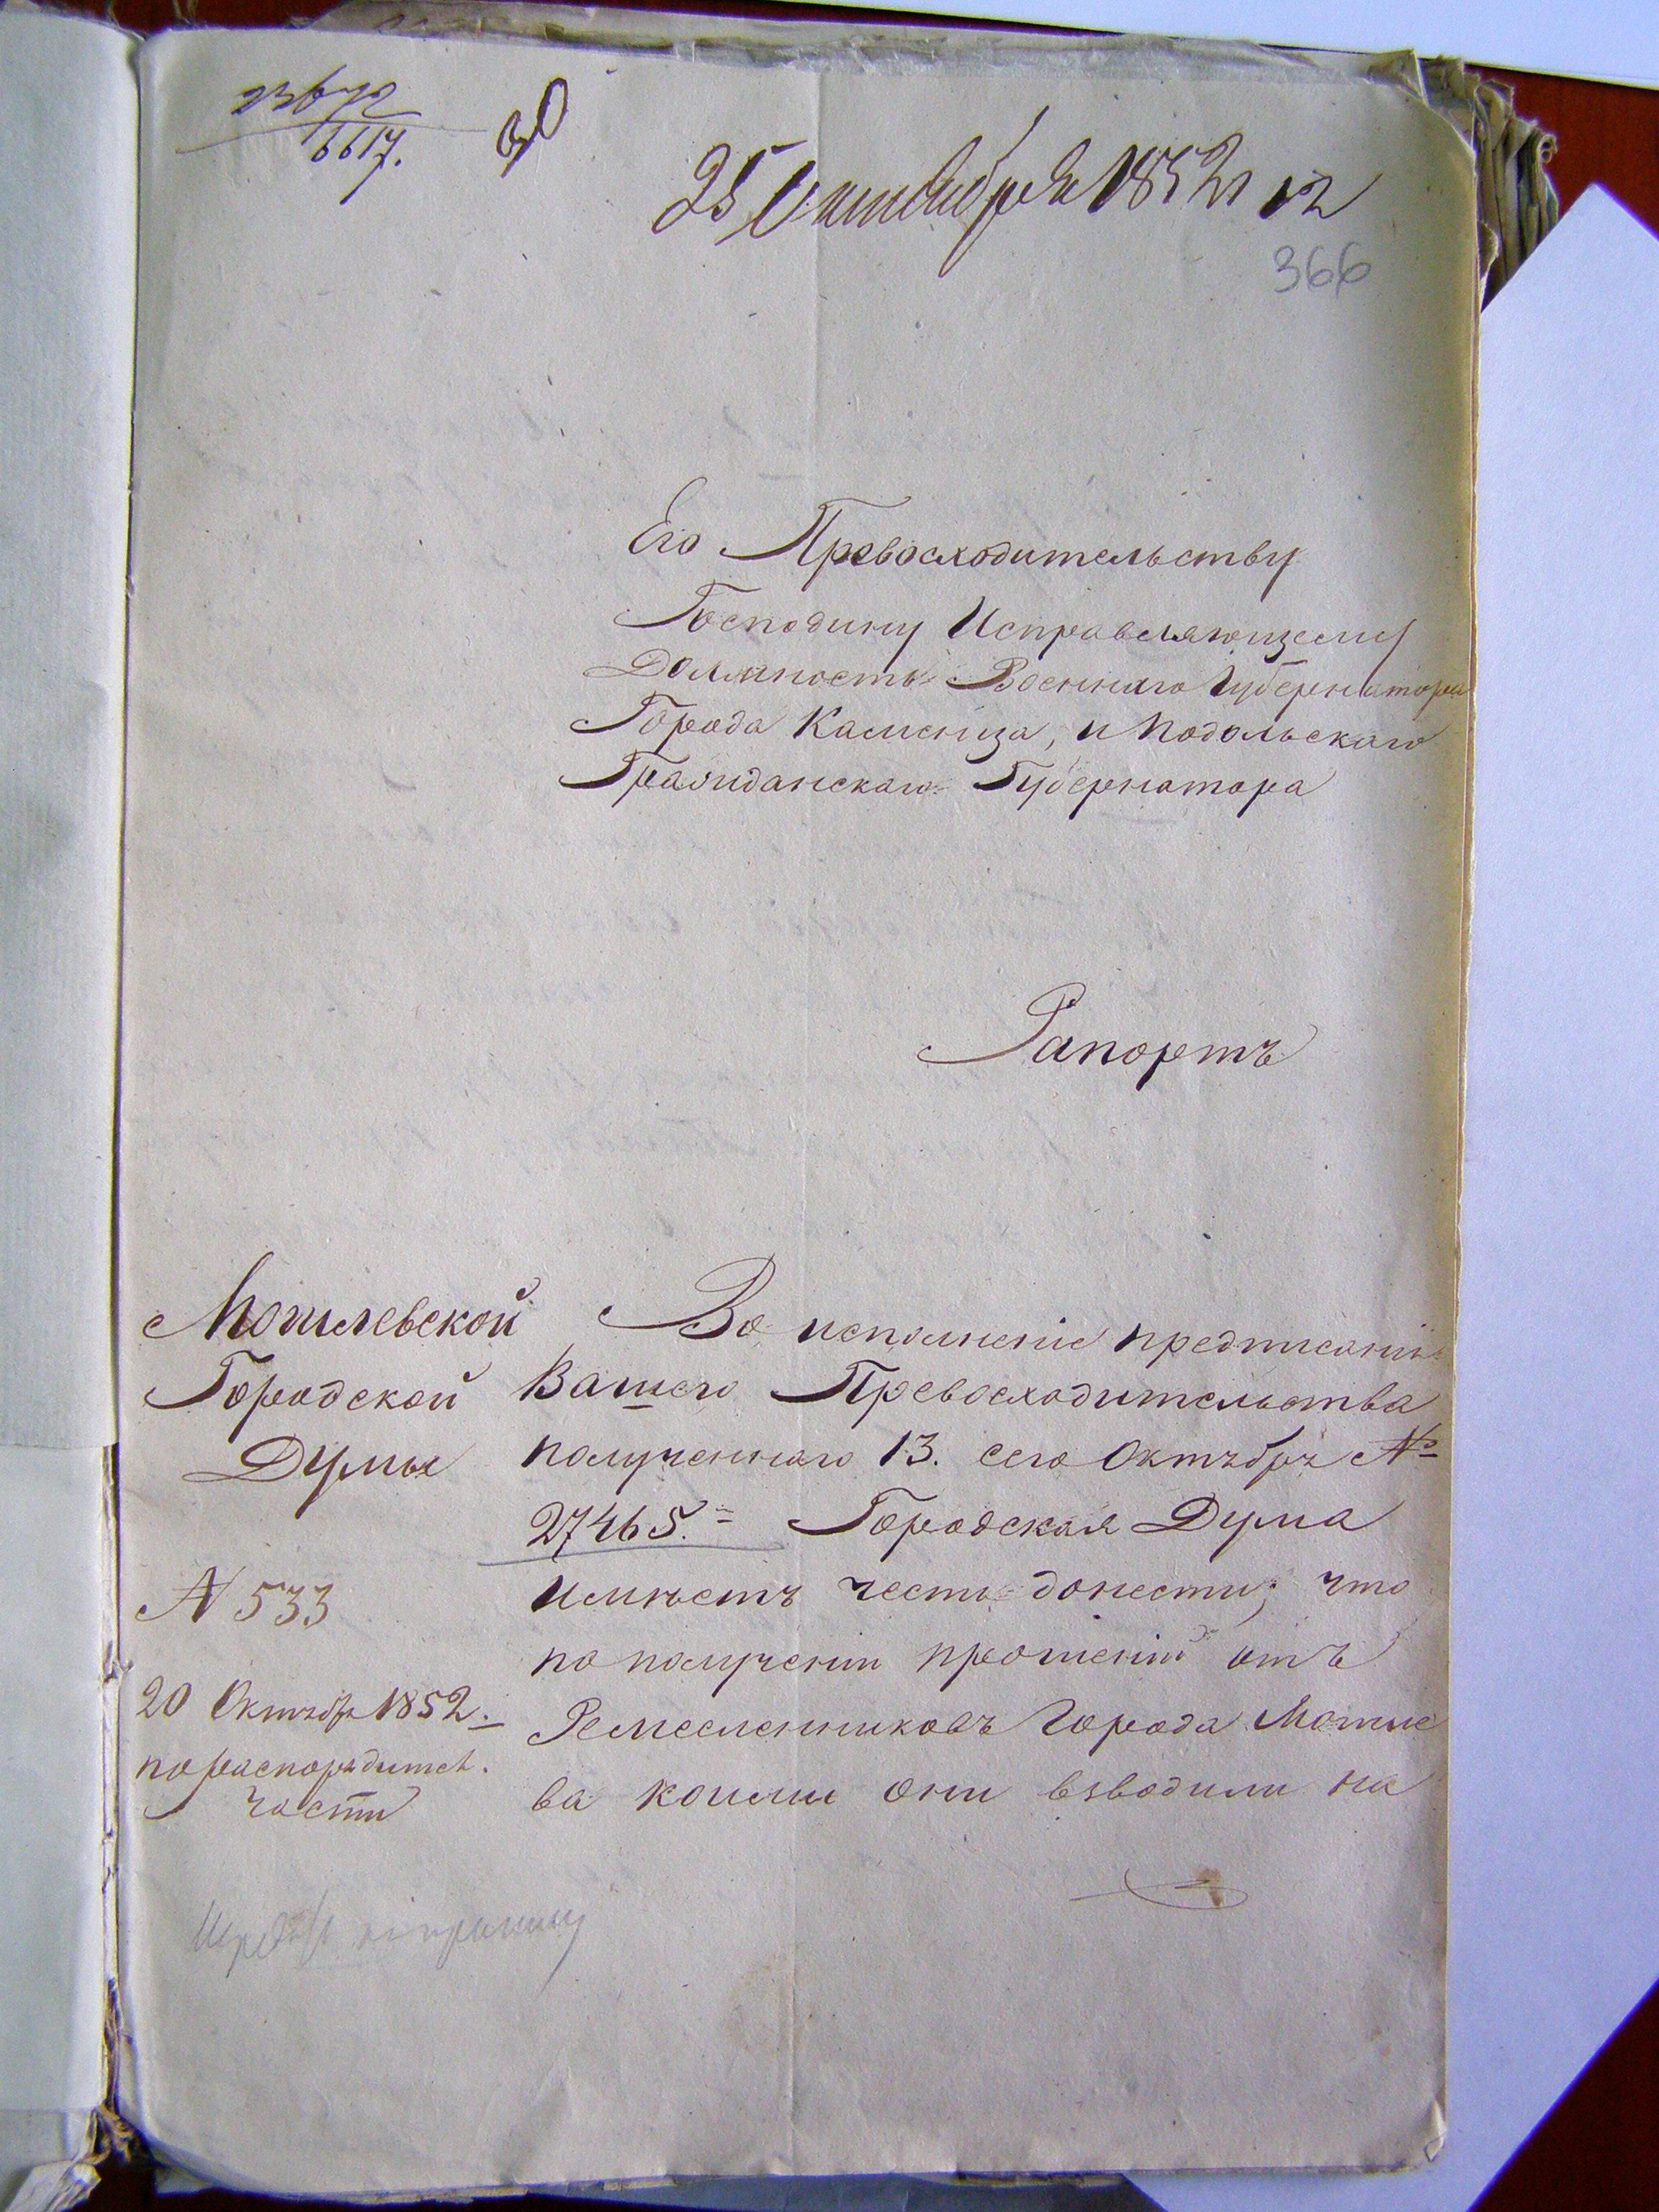 6617.
30
25 Октября 1852 г
366
Его Превосходительству
Господину Исправляющему
Должность Военнаго Губернатора
Города Каменца, и Подольскаго
Гражданскаго Губернатора
Рапортъ
Могилевской
Городской
Думы
N 533
20 Октября 1852.
по распорядител.
части
Во исполненіе предписанія
Вашего Превосходительства
полученнаго 13. сего Октября №
27465. Городская Дума
имѣетъ честь донести, что
по полученіи прошеній отъ
Ремесленниковъ Города Могиле
ва коими они взводили на